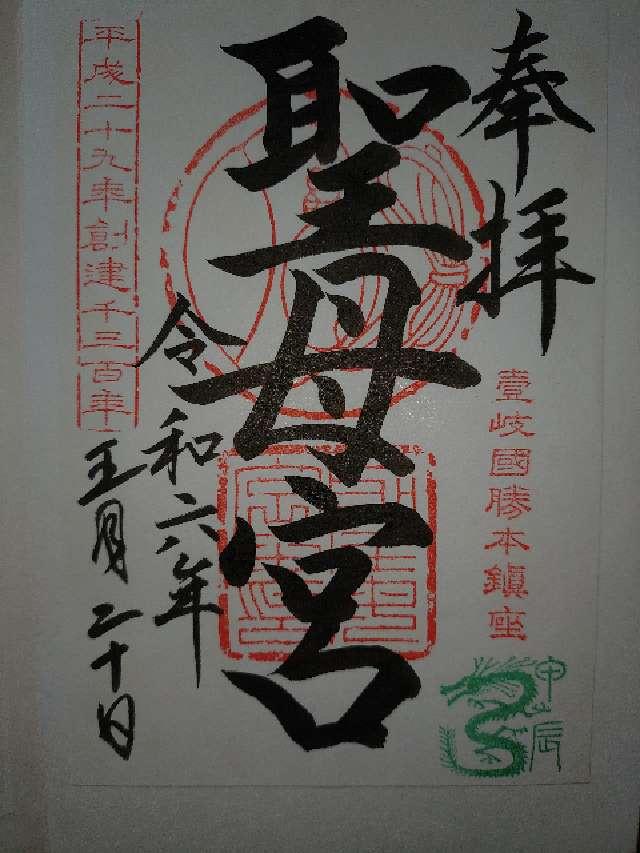 奉拝
壹岐國勝本鎮座
聖母宮
令和六年
五月二十日
平成二十九年創建千三百年
甲辰